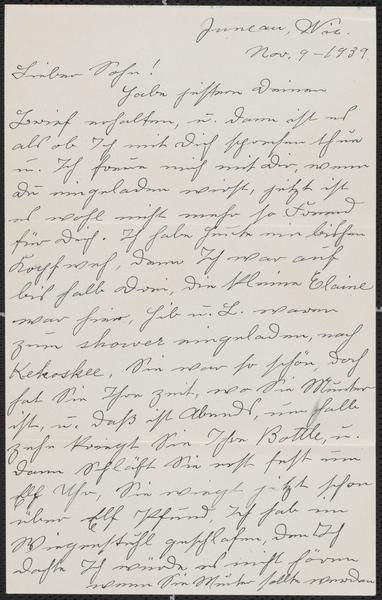 Juneau, Wis.
Nov. 9 - 1939.
Lieber Sohn!
Habe gestern Deinen
Brief erhalten, u. dann ist es
als ob Ich mit Dich sprechen thue
u. Ich freue mich mit Dir, wenn
Du eingeladen wirst, jetzt ist
es wohl nicht mehr so Fremd
für Dich. Ich habe heute ein bischen
Kopfweh, denn Ich war auf
bis halb Drei, die kleine Elaine
war hier, u. L. waren
zum shower eingeladen, nach
Kekoskee, Sie war so schön, doch
hat Sie Ihre zeit, wo Sie Munter
ist, u. daß ist Abends, um halb
zehn kriegt Sie Ihre Bottle, u.
dann schläft Sie erst fest um
Elf Uhr, Sie wiegt jetzt schon
über Elf Pfund Ich hab im
Wiegenstuhl geschlafen, den Ich
dachte Ich würde es nicht hören
wenn Sie Munter sollte werden